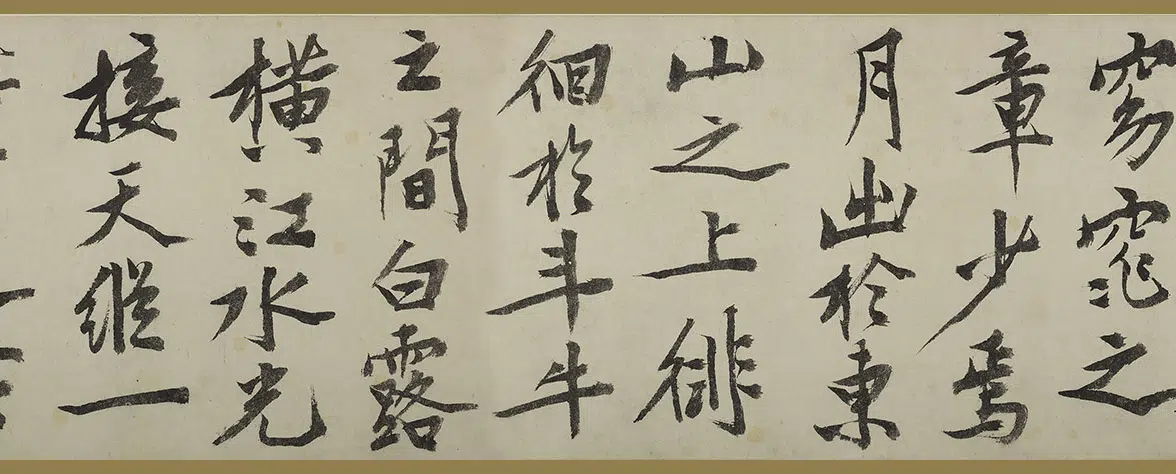 窈窕之
章少焉
月出於東
山之上徘
徊於斗牛
之間白露
橫江水光
接天縱一